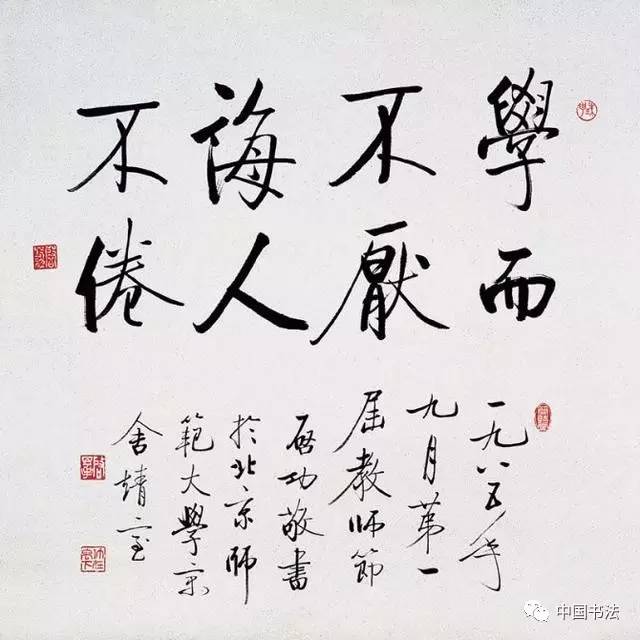 學而
不厭
誨人
不倦
一九八五年
九月第一
屆教師節
啟功敬書
於北京師
範大學京
舍靖室
中国书法